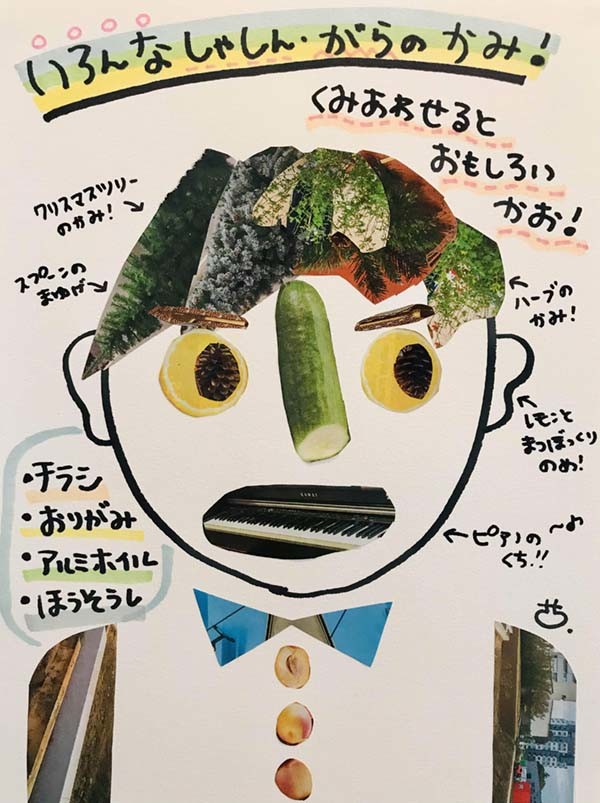 いろんなしゃしん・がらのかみ!
くみあわせると
おもしろい
かお!
クリスマスツリー
のかみ!
スプーンの
まゆげ
ハーブの
かみ!
レモンと
まつぼっくり
のめ!
・チラシ
・おりがみ
・アルミホイル
・ほうそうし
KAWAI
ピアノの
くち!!